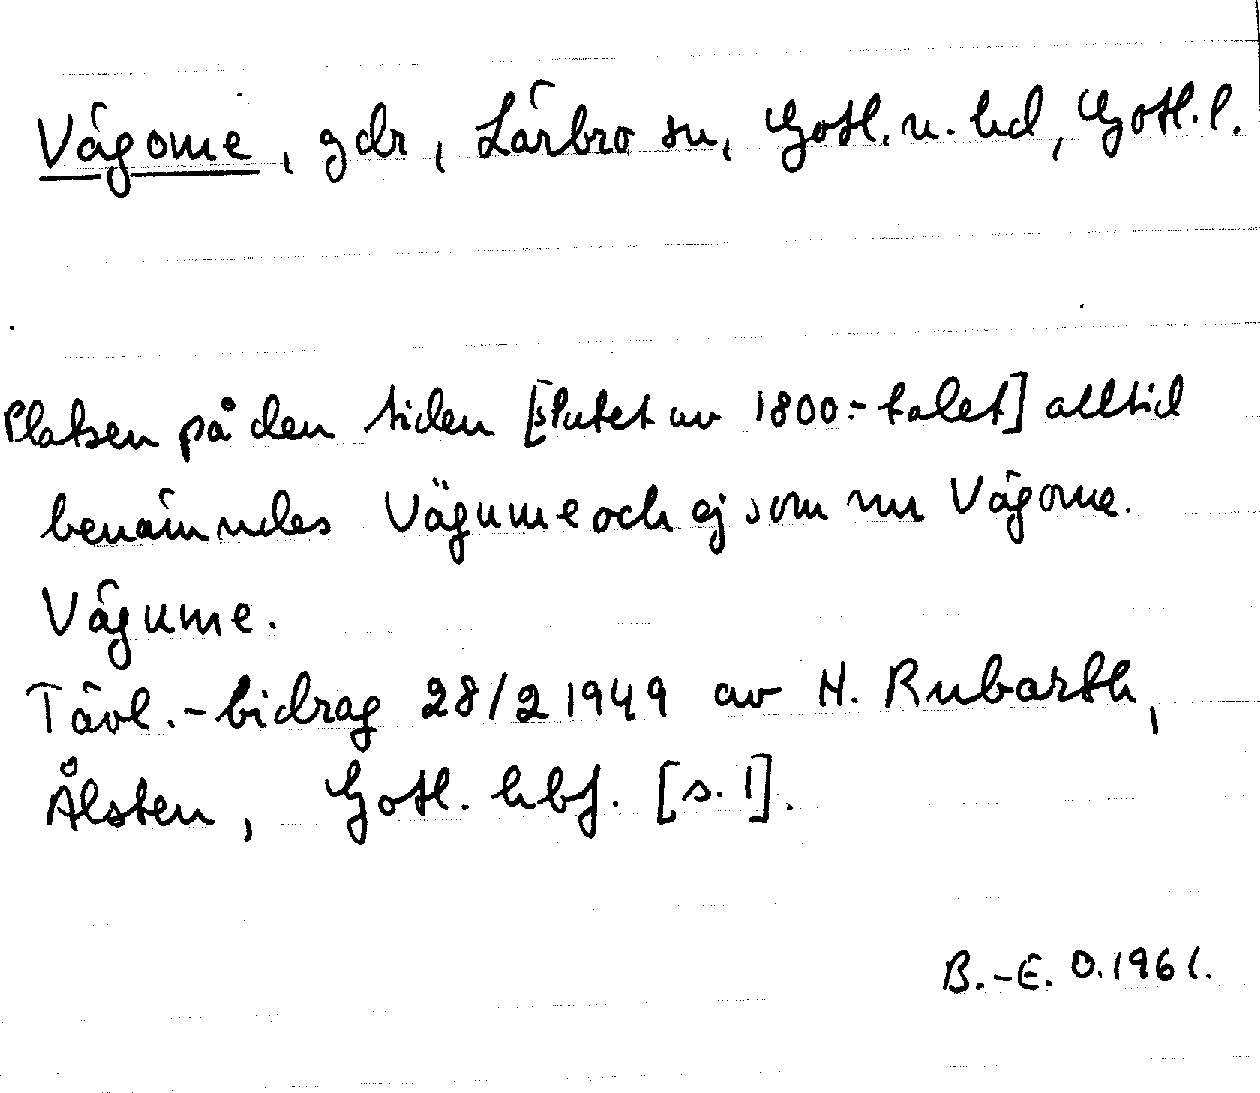 Vägome, gdr, Lärbro sn, Gotl. n. hd, Gotl. l.
Platsen på den tiden [slutet av 1800:-talet] alltid
benämndes Vägume och ej som nu Vägome.
Vägume.
Tävl.-bidrag 28/2 1949 av H. Rubarth,
Ålsten, Gotl. hbf. [s. 1].
B.-E. O. 1961.